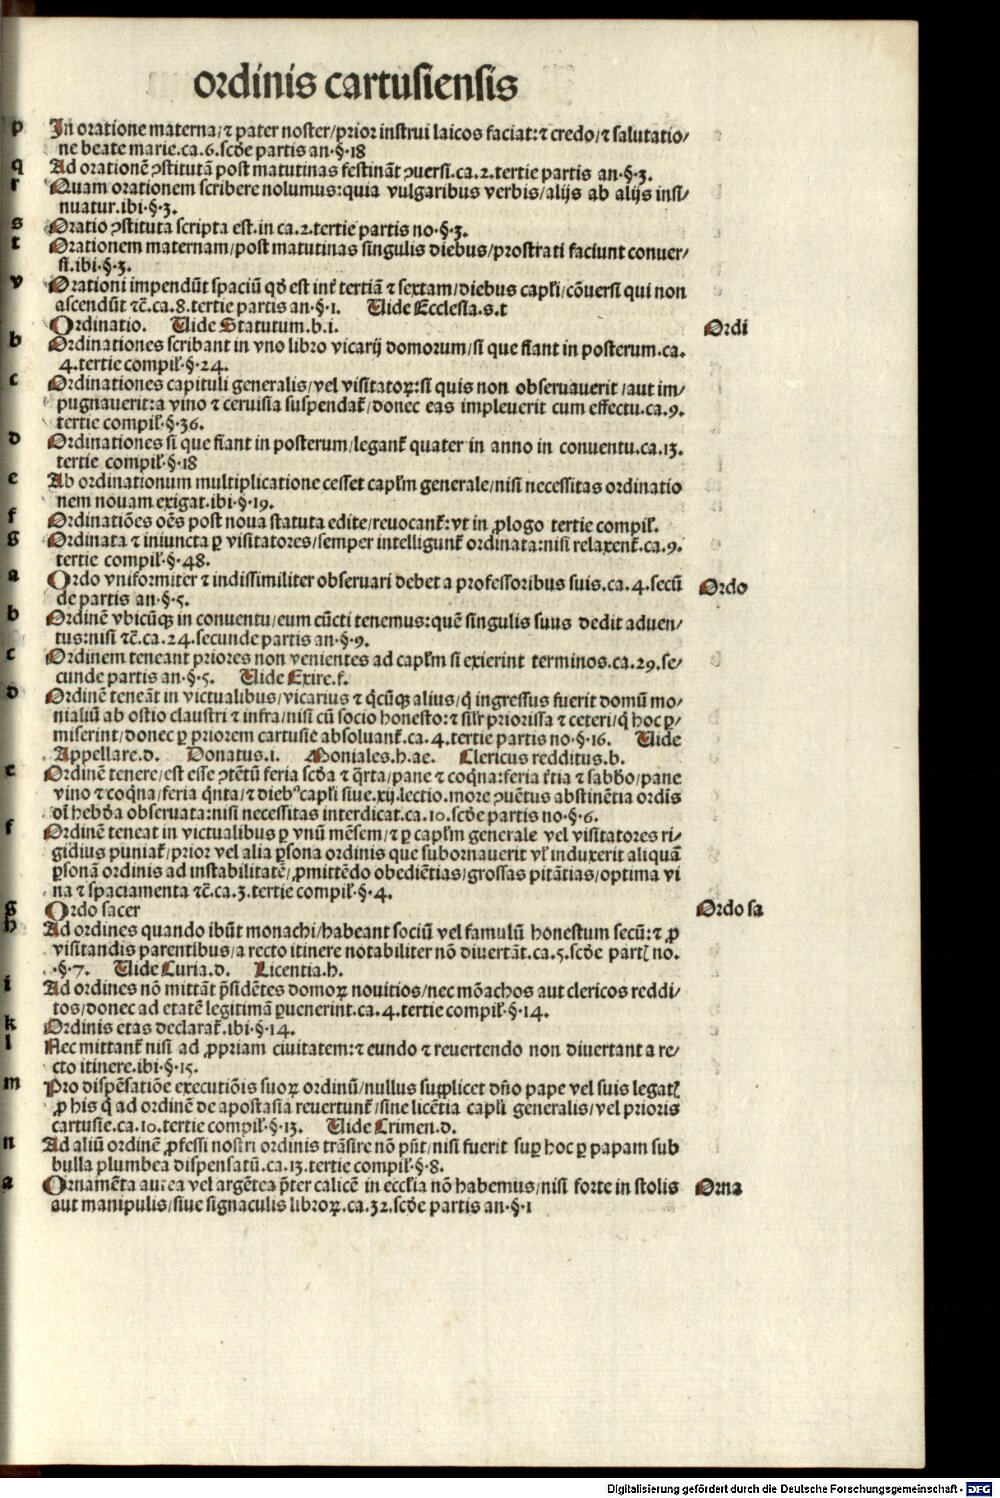 ordinis cartusiensis
p In oratione materna/⁊ pater noster/prior instrui laicos faciat:⁊ credo/⁊ salutatio/
ne beate marie.ca.6.scd̄e partis an.§.18
q Ad orationē ꝯstitutā post matutinas festināt ꝯuersi.ca.2.tertie partis an.§.3.
r Quam orationem scribere nolumus:quia vulgaribus verbis/alijs ab alijs insi/
nuatur.ibi.§.3.
s Oratio ꝯstituta scripta est.in ca.2.tertie partis no.§.3.
t Orationem maternam/post matutinas singulis diebus/prostrati faciunt conuer/
si.ibi.§.3.
v Orationi impendūt spaciū qd̄ est int̄ tertiā ⁊ sextam/diebus capłi/cōuersi qui non
ascendūt ⁊c̄.ca.8.tertie partis an.§.1. Uide Ecclesia.s.t
Ordinatio. Uide Statutum.b.i. Ordi
b Ordinationes scribant in vno libro vicarij domorum/si que fiant in posterum.ca.
4.tertie compił.§.24.
c Ordinationes capituli generalis/vel visitatoꝝ:si quis non obseruauerit/aut im/
pugnauerit:a vino ⁊ ceruisia suspendat̄/donec eas impleuerit cum effectu.ca.9.
tertie compił.§.36.
d Ordinationes si que fiant in posterum/legant̄ quater in anno in conuentu.ca.13.
tertie compił.§.18
e Ab ordinationum multiplicatione cesset capłm generale/nisi necessitas ordinatio
nem nouam exigat.ibi.§.19.
f Ordinatiōes oēs post noua statuta edite/reuocant̄:vt in ꝓlogo tertie compił.
g Ordinata ⁊ iniuncta ꝑ visitatores/semper intelligunt̄ ordinata:nisi relaxent̄.ca.9.
tertie compił.§.48.
a Ordo vniformiter ⁊ indissimiliter obseruari debet a professoribus suis.ca.4.secū Ordo
de partis an.§.5.
b Ordinē vbicūqꝫ in conuentu/eum cūcti tenemus:quē singulis suus dedit aduen/
tus:nisi ⁊c̄.ca.24.secunde partis an.§.9.
c Ordinem teneant priores non venientes ad capłm si exierint terminos.ca.29.se/
cunde partis an.§.5. Uide Exire.f.
d Ordinē teneāt in victualibus/vicarius ⁊ q̄cūqꝫ alius/q̄ ingressus fuerit domū mo/
nialiū ab ostio claustri ⁊ infra/nisi cū socio honesto:⁊ silr̄ priorissa ⁊ ceteri/q̄ hoc ꝑ/
miserint/donec ꝑ priorem cartusie absoluant̄.ca.4.tertie partis no.§.16. Uide
Appellare.d. Donatus.i. Moniales.h.ae. Clericus redditus.b.
e Ordinē tenere/est esse ꝯtētū feria scd̄a ⁊ q̄rta/pane ⁊ coq̄na:feria t̄tia ⁊ sabb̄o/pane
vino ⁊ coq̄na/feria q̄nta/⁊ diebꝰ capłi siue.xij.lectio.more ꝯuētus abstinētia ordīs
oī hebd̄a obseruata:nisi necessitas interdicat.ca.10.scd̄e partis no.§.6.
f Ordinē teneat in victualibus ꝑ vnū mēsem/⁊ ꝑ capłm generale vel visitatores ri/
gidius puniat̄/prior vel alia ꝑsona ordinis que subornauerit vł induxerit aliquā
ꝑsonā ordinis ad instabilitatē/ꝓmittēdo obediētias/grossas pitātias/optima vi
na ⁊ spaciamenta ⁊c̄.ca.3.tertie compił.§.4.
g Ordo sacer Ordo sa
h Ad ordines quando ibūt monachi/habeant sociū vel famulū honestum secū:⁊ ꝓ
visitandis parentibus/a recto itinere notabiliter nō diuertāt.ca.5.scd̄e part̄ no.
.§.7. Uide Curia.d. Licentia.h.
i Ad ordines nō mittāt p̄sidētes domoꝝ nouitios/nec mōachos aut clericos reddi/
tos/donec ad etatē legitimā ꝑuenerint.ca.4.tertie compił.§.14.
k Ordinis etas declarat̄.ibi.§.14.
l Nec mittant̄ nisi ad ꝓpriam ciuitatem:⁊ eundo ⁊ reuertendo non diuertant a re/
cto itinere.ibi.§.15.
m Pro dispēsatiōe executiōis suoꝝ ordinū/nullus supplicet dn̄o pape vel suis legat̄
ꝓ his q̄ ad ordinē de apostasia reuertunt̄/sine licētia capłi generalis/vel prioris
cartusie.ca.10.tertie compił.§.13. Uide Crimen.d.
n Ad aliū ordinē ꝓfessi nostri ordinis trāsire nō pn̄t/nisi fuerit suꝑ hoc ꝑ papam sub
bulla plumbea dispensatū.ca.13.tertie compił.§.8.
a Ornamēta aurea vel argētea p̄ter calicē in ecclīa nō habemus/nisi forte in stolis Orna
aut manipulis/siue signaculis libroꝝ.ca.32.scd̄e partis an.§.1
Digitalisierung gefördert durch die Deutsche Forschungsgemeinschaft - DFG